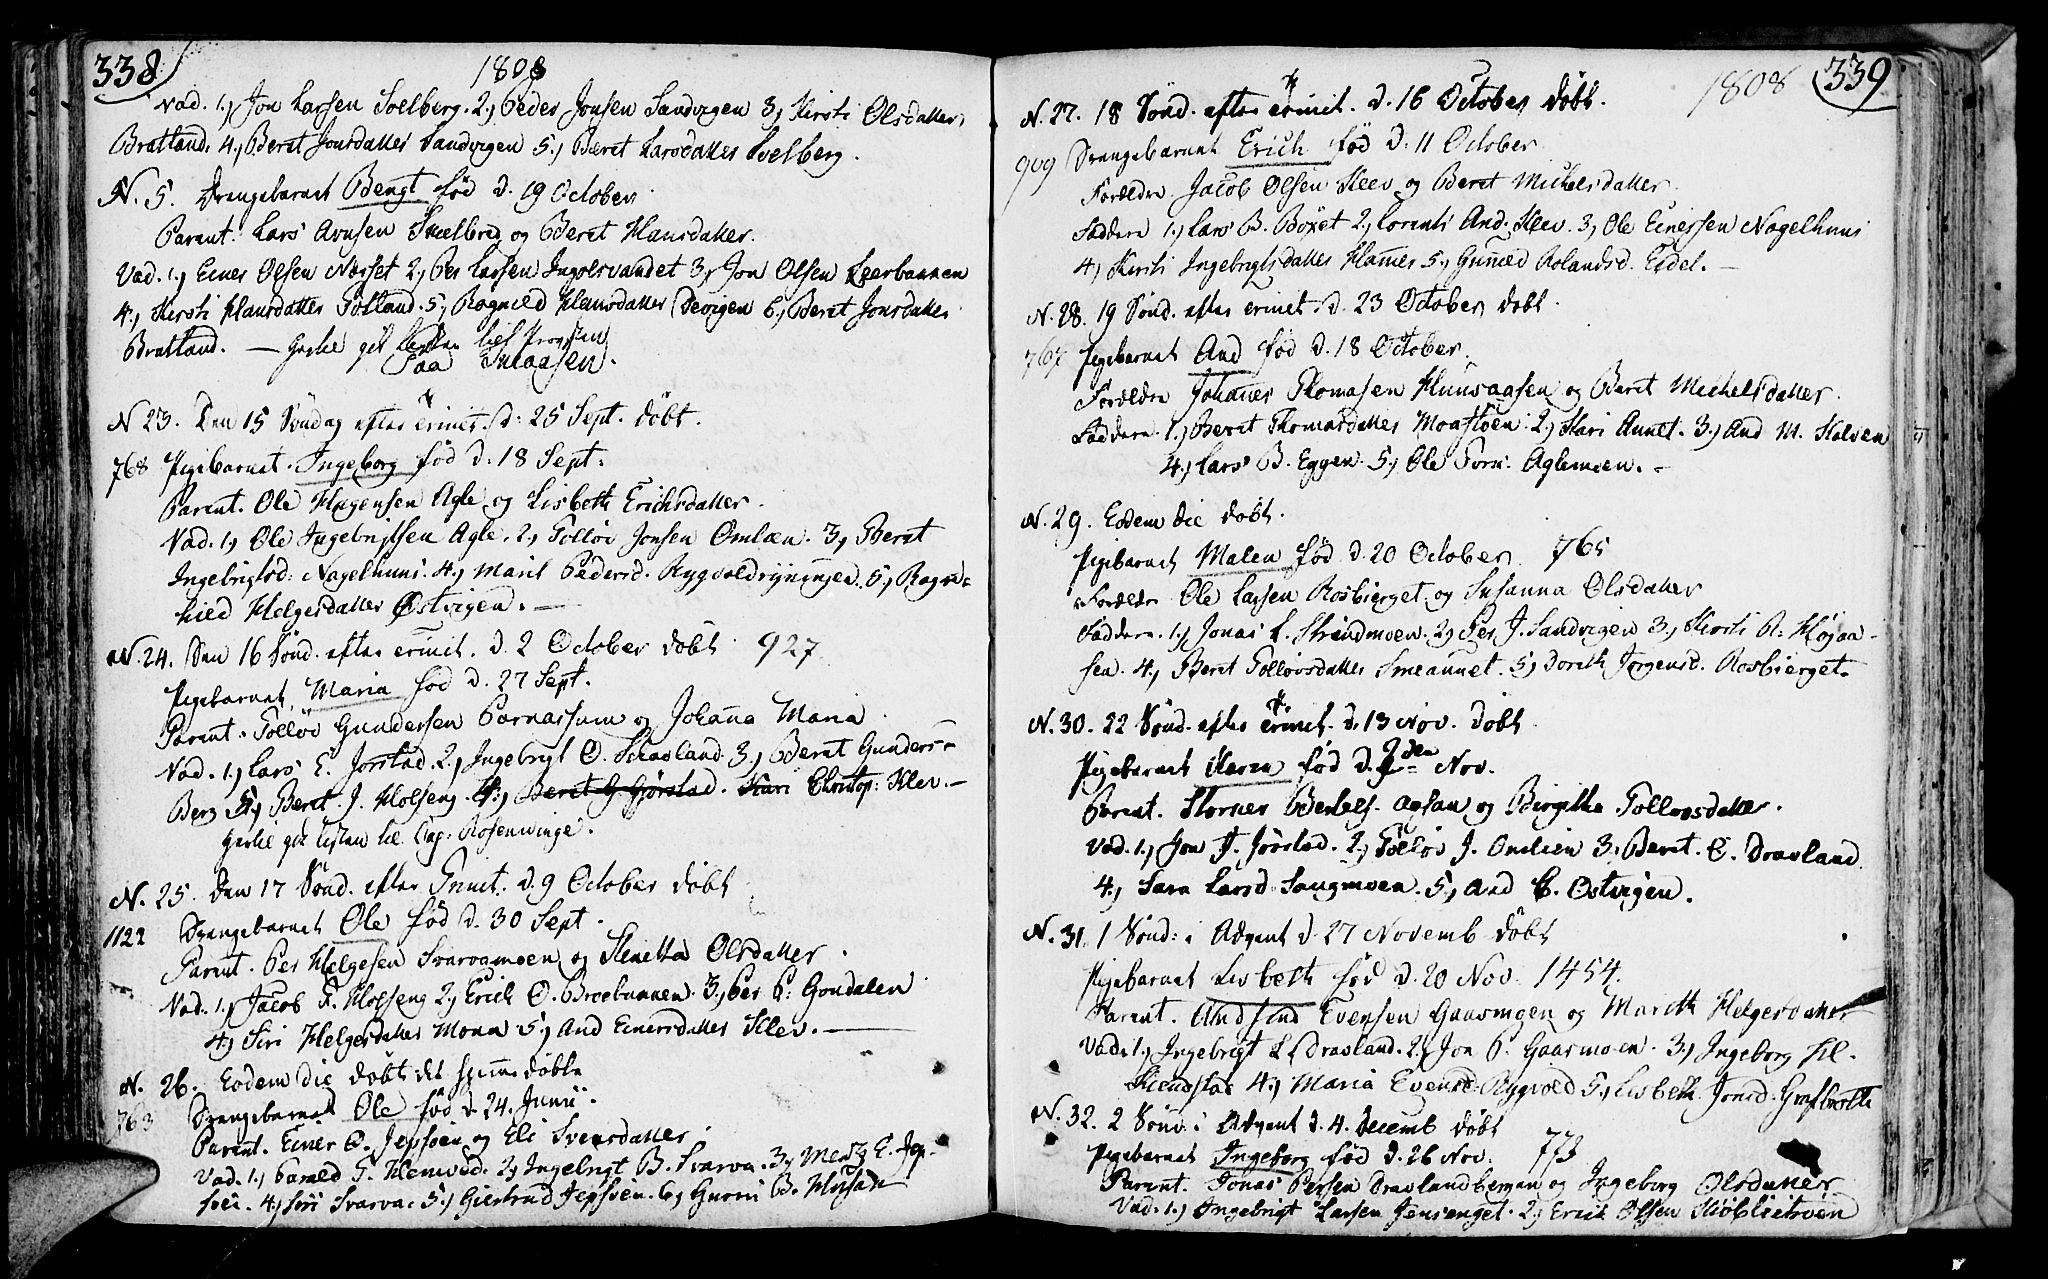 338
1808
Vad. 1, Jon Larsen Soelberg. 2, Peder Jonsen Sandvigen 3, Kirsti Olsdatter
Bratland. 4, Beret Jonsdatter Sandvigen 5, Beret Larsdatter Soelberg.
N. 5. Drengebarnet Bengt fød d. 19 October
Parent. Lars Arnsen Smelbred og Beret Hansdatter.
Vad. 1, Einer Olsen Næsset 2, Per Larsen Ingolsvandet 3, Jon Olsen Leerbakken
4, Kirsti Hansdatter Tolland. 5, Ragnild Hansdatter Devigen 6, Beret Jonsdatter
Bratland. — gik Listen til Provsten
Saa Snaasen.
N 23. Den 15 Søndag efter Trinit. d. 25 Sept. døbt.
768 Pigebarnet. Ingeborg fød d. 18 Sept.
Parent. Ole Hagensen Agle og Lisbeth Erichsdatter.
Vad. 1, Ole Ingebrigtsen Agle. 2, Tolløv Jonsen Omlæn. 3, Beret
Ingebrigtsd: Nagelhuus. 4, Marit Pedersd. Rygvoldrygningen. 5, Ragn-
hild Helgesdatter Østvigen. —
N. 24. Den 16 Sønd. efter Trinit. d. 2 October døbt 927
Pigebarnet Maria fød d. 27 Sept.
Parent. Tolløv Gundersen Parnassum og Johanna Maria
Vad. 1, Lars E. Jørstad. 2, Ingebrigt O. Schavland. 3, Beret Gunders-
Berg 4, Beret J. Holseng Beret G Gjørstad. Kari Christop: Klev. —
gik Listen til Cap: Rosenvinge.
N. 25. Den 17 Sønd. efter Trinit. d. 9 October døbt
1122 Drengebarnet Ole fød d. 30 Sept.
Parent. Per Helgesen Svarvamoen og Stenetta Olsdatter.
Vad. 1, Jacob T. Holseng 2, Erich O. Breebakken. 3, Per P. Gondalen
4, Siri Helgesdatter Moen 5, And Einersdatter Klev. —
N. 26. Eodem die døbt det hjemmedøbte
763 Drengebarnet Ole fød d. 24. Junii.
Parent. Einer O. Jepsøen og Eli Svensdatter
Vad. 1, T. 2, Ingebrigt B. Svarva. 3, E. Jep-
søen. 4, Siri Svarva. 5, Giertrud Jepsøen. 6, Guri B.
339
1808
N. 27. 18 Sønd. efter Trinit. d. 16 October døbt.
909 Drengebarnet Erich fød d. 11 October
Forældre Jacob Olsen Klev og Beret Michelsdatter.
Faddere 1, Lars B. Boxet 2, Lorents And. Klev. 3, Ole Einersen Nagelhuus
4, Kirsti Ingebrigtsdatter Hammer 5, Gunild Rolandsd. Eidel. —
N. 28. 19 Sønd. efter Trinit. d. 23 October døbt.
767 Pigebarnet And fød d. 18 October.
Forældre Johannes Thomasen Kunsaasen og Beret Michelsdatter.
Faddere. 1, Beret Thomasdatter Moastøen. 2, Kari Aunet. 3, And M. Holven
4, Lars B. Eggen. 5, Ole Torst: Aglemoen. —
N. 29. Eodem die døbt.
Pigebarnet Malen fød d. 20 October. 765
Forældre Ole Larsen Rosbierget og Susanna Olsdatter
Faddere. 1, Jonas L. Strindmoen. 2, Per J. Sandvigen 3, Kirsti R. Højaa-
sen. 4, Beret Tolløvsdatter Smeaunet. 5, Doreth Jørgensd. Rosbierget.
N. 30. 22 Sønd. efter Trinit. d. 13 Nov. døbt
Pigebarnet Karen fød d. 2den Nov.
Parent. og Birgitha Tolløvsdatter.
Vad. 1, Jon J. Jørstad. 2, Tolløv J. Omlien 3, Beret. O. Dravland
4, Sara Larsd. Sougmoen. 5, And E. Østvigen.
N. 31. 1 Sønd: i Advent d. 27 Novemb døbt
Pigebarnet Lisbeth fød d. 20 Nov. 1454.
Parent. Evensen Gaasmoen og Mareth Helgesdatter
Vad. 1, Ingebrigt L Dravland. 2, Jon P. Gaasmoen. 3, Ingeborg
4, Maria Evensd. Rygvold 5, Lisbeth Jonsd.
N. 32. 2 Sønd. i Advent d. 4. Decemb døbt
Pigebarnet Ingeborg fød d. 26 Nov. 773
Parent. Jonas Persen Dravlandbergan og Ingeborg Olsdatter
Vad. 1, Ingebrigt Larsen Jensenget. 2, Erich Olsen